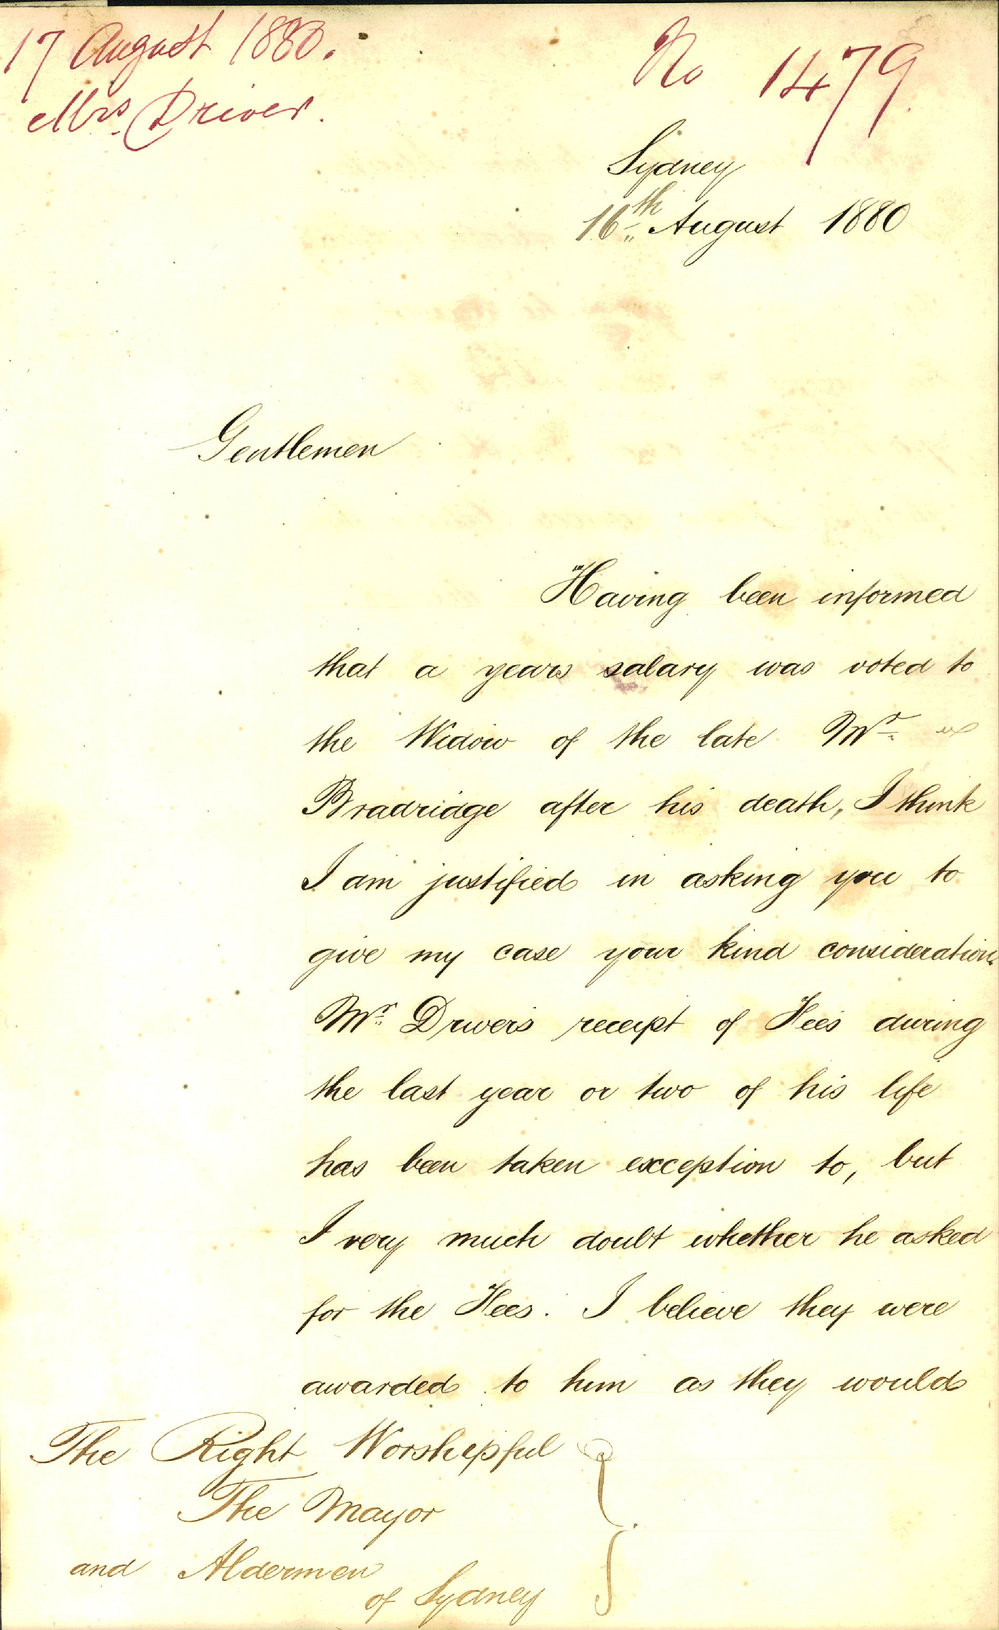 17 August 1880.
Mrs. Driver.
No 1479
Sydney
16th August 1880
Gentlemen
Having been informed
that a years salary was voted to
the Widow of the late Mr.
Bradridge after his death, I think
I am justified in asking you to
give my case your kind consideration.
Mr. Driver's receipt of Fees during
the last year or two of his life
has been taken exception to, but
I very much doubt whether he asked
for the Fees. I believe they were
awarded to him as they would
The Right Worshipful
The Mayor
and Aldermen
of Sydney